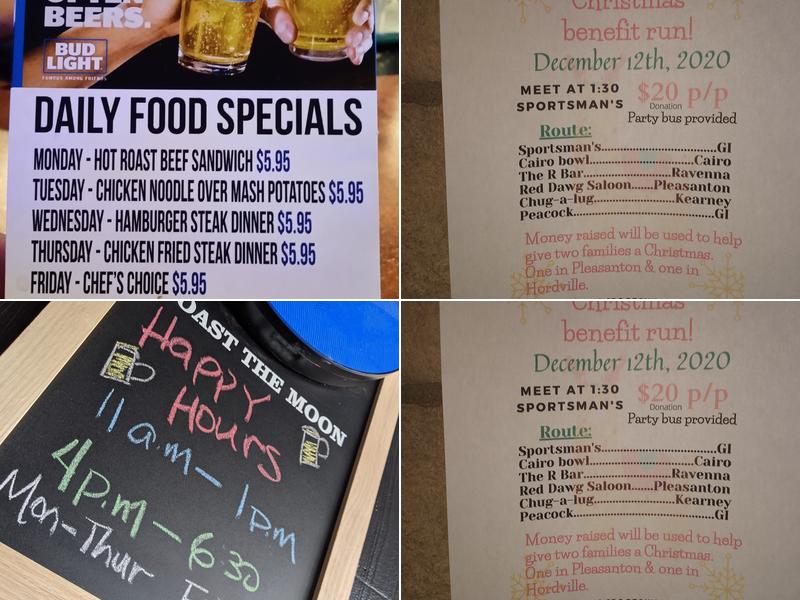 BEERS.
BUD
LIGHT
FAMOUS AMONG FRIENDS
DAILY FOOD SPECIALS
MONDAY - HOT ROAST BEEF SANDWICH $5.95
TUESDAY - CHICKEN NOODLE OVER MASH POTATOES $5.95
WEDNESDAY - HAMBURGER STEAK DINNER $5.95
THURSDAY - CHICKEN FRIED STEAK DINNER $5.95
FRIDAY - CHEF'S CHOICE $5.95
Christmas
benefit run!
December 12th, 2020
MEET AT 1:30
SPORTSMAN'S
$20 p/p
Donation
Party bus provided
Route:
Sportsman's.............................GI
Cairo bowl..........................Cairo
The R Bar......................Ravenna
Red Dawg Saloon......Pleasanton
Chug-a-lug....................Kearney
Peacock...................................GI
Money raised will be used to help
give two families a Christmas.
One in Pleasanton & one in
Hordville.
OAST THE MOON
Happy
Hours
11 a.m - 1pm
4p.m - 6:30
Mon-Thur
Christmas
benefit run!
December 12th, 2020
MEET AT 1:30
SPORTSMAN'S
$20 p/p
Donation
Party bus provided
Route:
Sportsman's.............................GI
Cairo bowl..........................Cairo
The R Bar......................Ravenna
Red Dawg Saloon......Pleasanton
Chug-a-lug....................Kearney
Peacock...................................GI
Money raised will be used to help
give two families a Christmas.
One in Pleasanton & one in
Hordville.